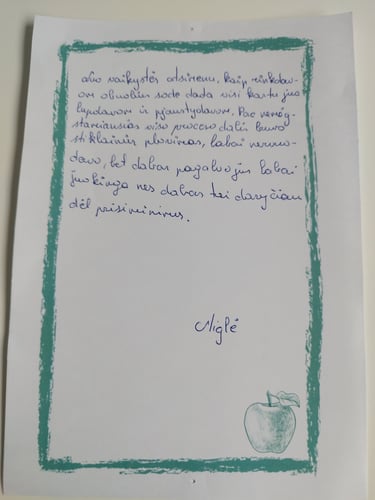 abo vaikystės atsimenu, kaip rinkdav-
om obuolius sode dada visi kartu juos
lupdavom ir pjaustydavom. Pac
viso proceso dalis buvo
stiklainių plovimas, labai nervuo-
davo, bet dabar pagalvojus labai
juokinga nes dabar tai daryčiau
dėl prisiminimus.
Niglė